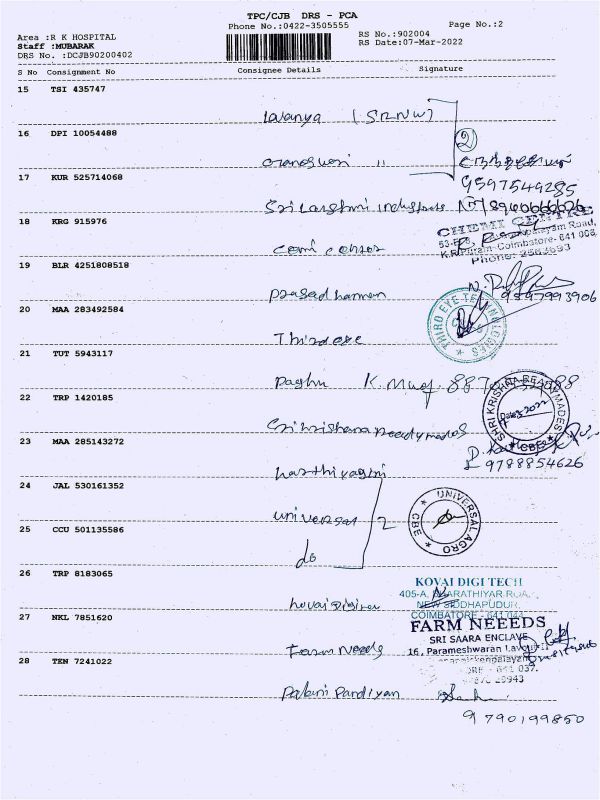 TPC/CJB DRS - PCA
Phone No.:0422-3505555
Page No.:2
Area :R K HOSPITAL
Staff :MUBARAK
DRS No. :DCJB90200402
RS No.:902004
RS Date:07-Mar-2022
S No Consignment No Consignee Details Signature
15 TSI 435747
lavanya (SRNW)
16 DPI 10054488
2
17 KUR 525714068
9597549285
Sri Lakshmi industries
18 KRG 915976
CHEMI CENTRE
K.R.Puram, Coimbatore-641 006,
19 BLR 4251808518
Prasad
9597993906
20 MAA 283492584
THIRD EYE TECHNOLOGIES
Third eye
21 TUT 5943117
Raghu K.
22 TRP 1420185
SHRI KRISHNA READYMADES
CBE
Sri krishana readymades
23 MAA 285143272
9788854626
24 JAL 530161352
universal 2
UNIVERSAL AGRO
CBE
25 CCU 501135586
do
26 TRP 8183065
KOVAI DIGI TECH
405-A, BHARATHIYAR ROAD,
NEW SIDDHAPUDUR,
COIMBATORE - 641 044
27 NKL 7851620
FARM NEEEDS
SRI SAARA ENCLAVE
16, Parameshwaran Layout
Farm Needs
28 TEN 7241022
641 037.
Palani Pandiyan
9790199850